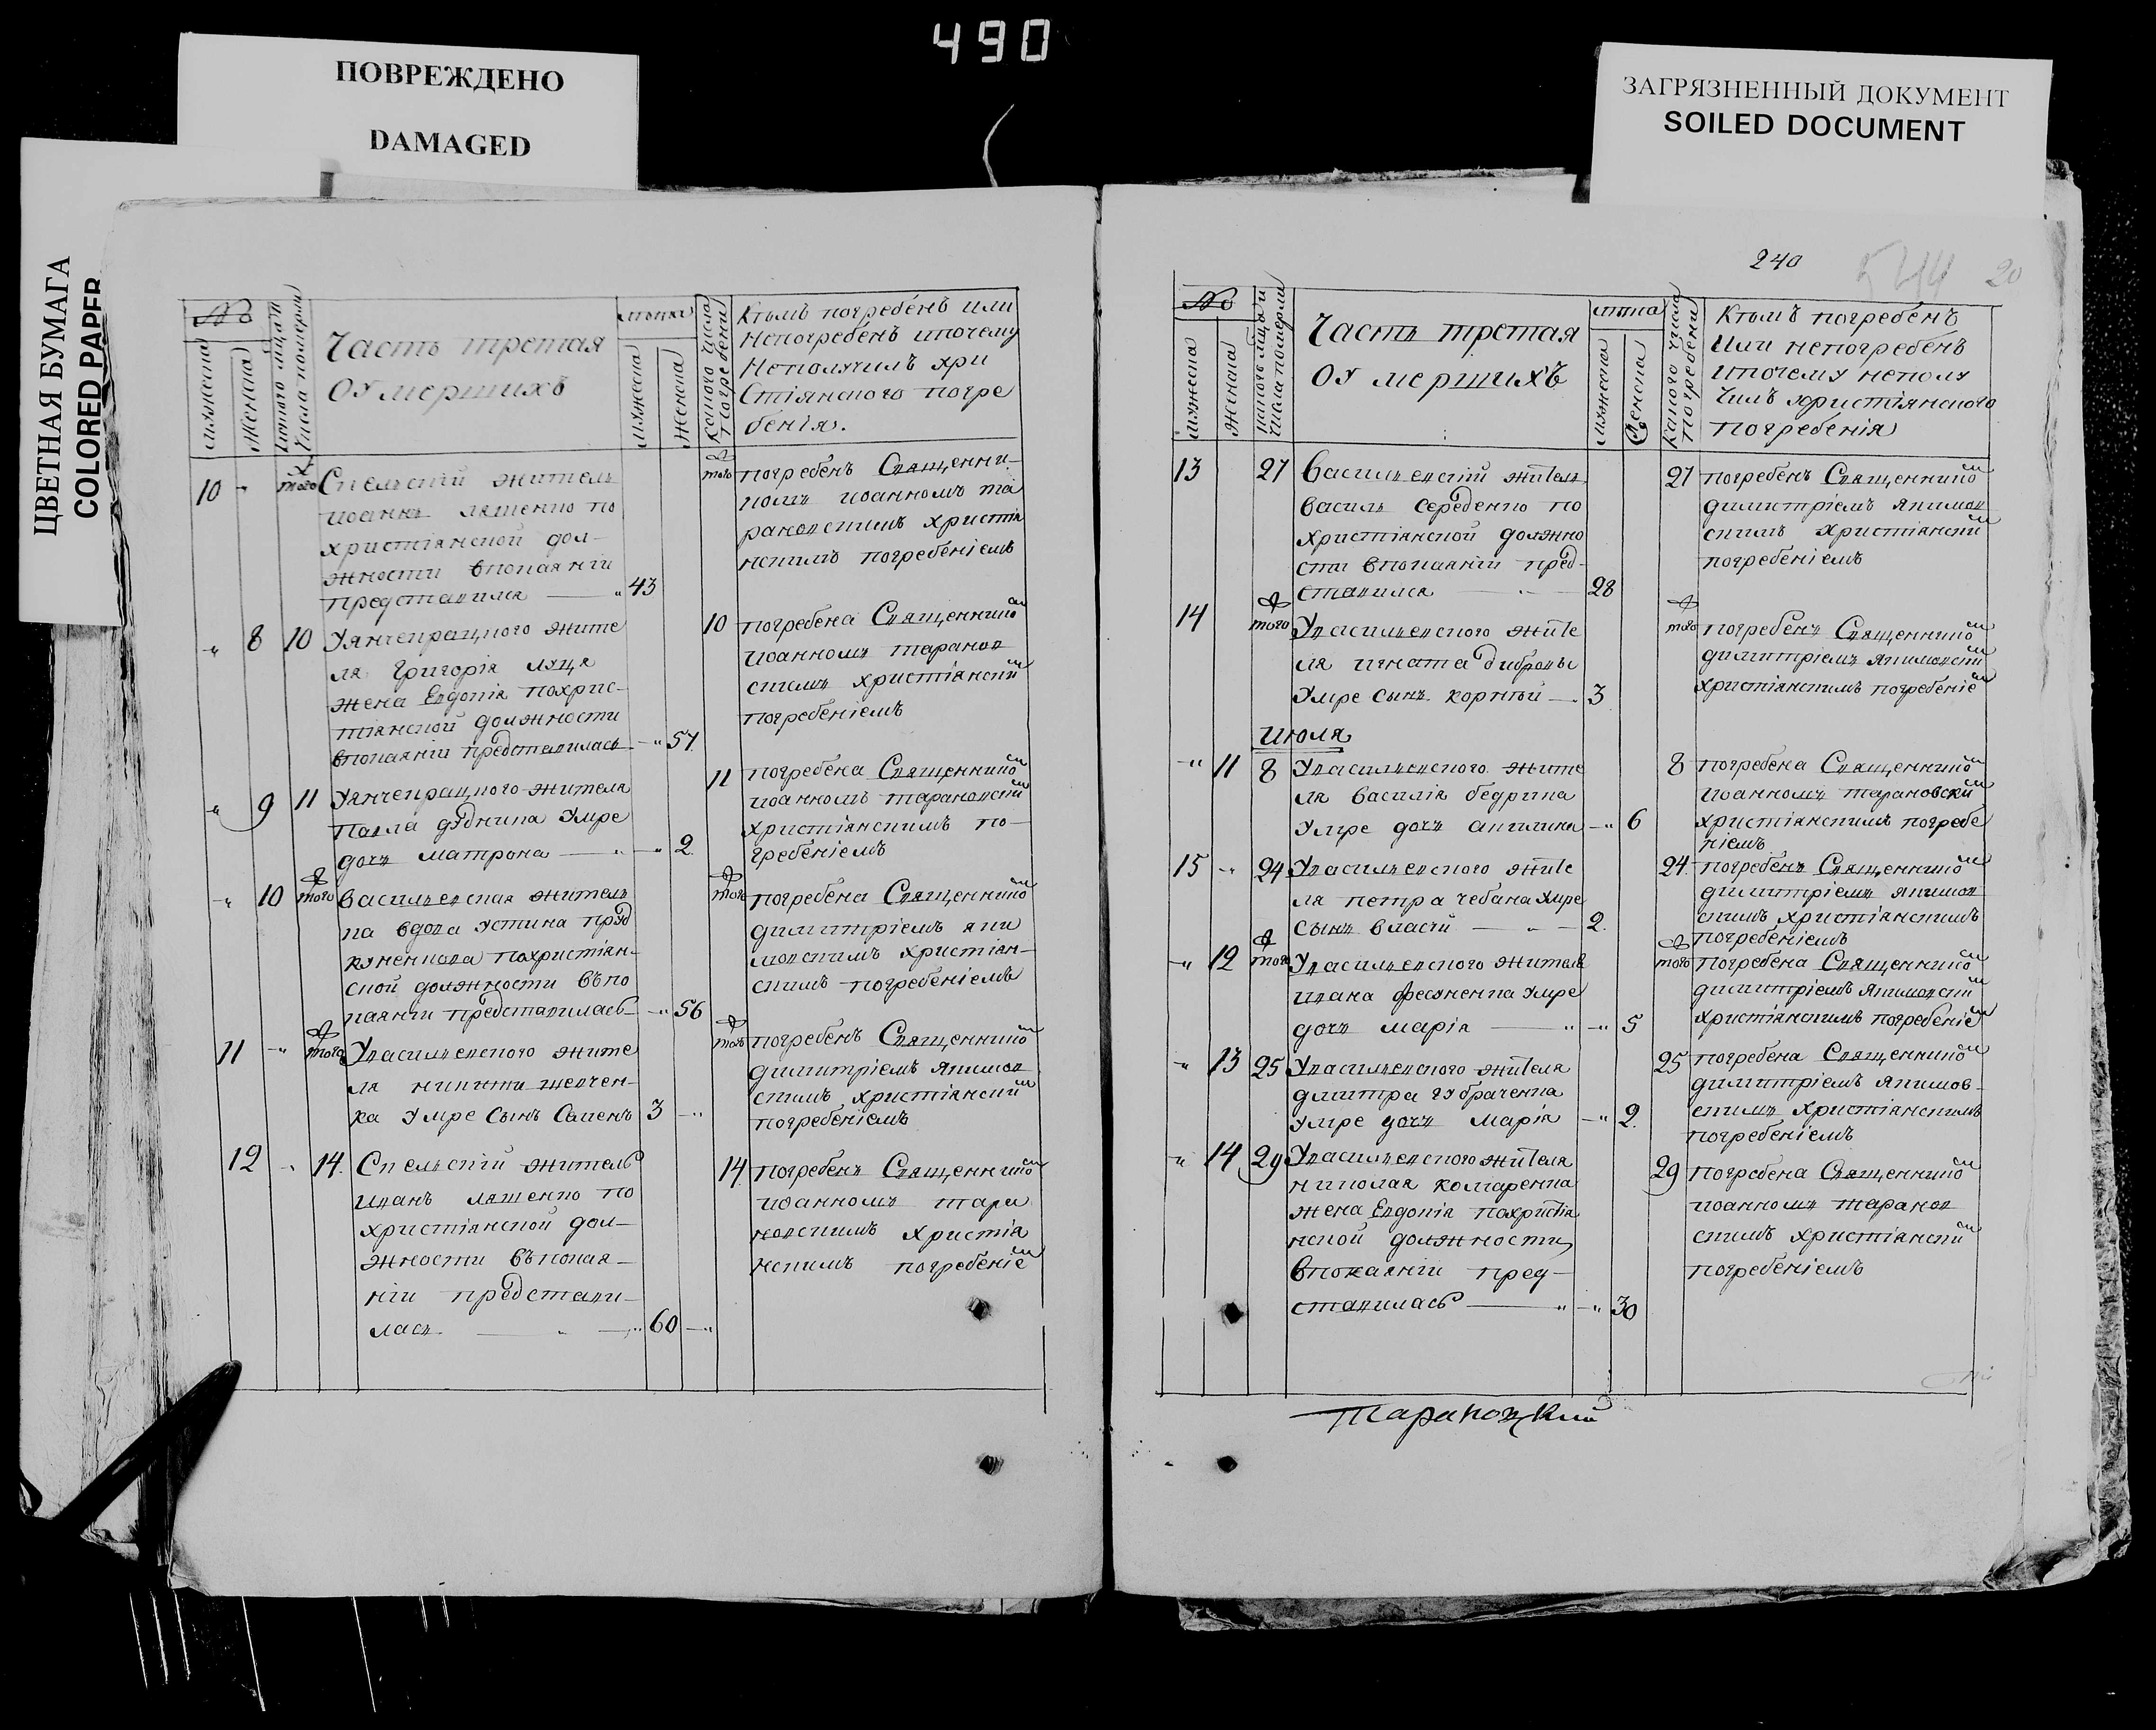 490
ПОВРЕЖДЕНО
DAMAGED
ЦВЕТНАЯ БУМАГА
COLORED PAPER
ЗАГРЯЗНЕННЫЙ ДОКУМЕНТ
SOILED DOCUMENT
№
мужеска
женска
Часть третая
Оумершихъ
мужеска
женска
Какого числа
Погребени
Кѣмъ погребенъ или
Непогребенъ ипочему
Неполучилъ хри
Стіянского погре
бенія.
10 того Скельскій житель
иоаннъ ляшенко по
христіянской дол-
жности впокаяніи
представился 43
того погребенъ Священни-
комъ иоанномъ та
рановскимъ христія
нскимъ погребеніемъ
8 10 Уянчекрацкого жите
ля Григорія луця
жена Евдокія похрис-
тіянской должности
впокаяніи представилась 57
10 погребена Священникоⷨ
иоанномъ таранов
скимъ христіянскиⷨ
погребеніемъ
9 11 Уянчекрацкого жителя
Павла дудника Умре
дочь матрона 2
11 погребена Священникоⷨ
иоанномъ тарановскиⷨ
христіянскимъ по-
гребеніемъ
10 того Васильевская житель
ка вдова Устина
похристіян-
ской должности въпо
каяніи представилась 56
того погребена Священникоⷨ
димитріемъ яки
мовскимъ христіян-
скимъ погребеніемъ
11 того Увасильевского жите
ля никити шевчен-
ка Умре Сынъ Семенъ 3
того погребенъ Священникоⷨ
димитріемъ якимов
скимъ христіянскиⷨ
погребеніемъ
12 14. Скельскіи житель
иванъ ляшенко по
христіянской дол-
жности въпокая-
ніи представи-
лась 60
14 погребенъ Священникоⷨ
иоанномъ тара
новскимъ христія
нскимъ погребеніеⷨ
240
20
№
мужеска
женска
Часть третая
Оумершихъ
мужеска
женска
Какого числа
Погребени
Кѣмъ погребенъ
Или непогребенъ
ипочему неполу
Чилъ христіянского
погребенія
13 27 Васильевскій житель
василь середенко по
христіянской должно
сти впокаяніи пред-
ставился 28
27 погребенъ Священникоⷨ
димитріемъ якимов
скимъ христіянскиⷨ
погребеніемъ
14 того Увасильевского жите
ля игната дибровы
Умре сынъ корнѣй 3
того погребенъ Священникоⷨ
димитріемъ якимовскиⷨ
христіянскимъ погребеніеⷨ
Июля
11 8 Увасильевского жите
ля василія бедрика
Умре дочь акилина 6
8 погребена Священникоⷨ
иоанномъ тарановскиⷨ
христіянскимъ погребе
ніемъ
15 24 Увасильевского жите
ля петра чебана Умре
сынъ власій 2.
24. погребенъ Священникоⷨ
димитріемъ якимов
скимъ христіянскимъ
погребеніемъ
12 того Увасильевского жителя
ивана фесуненка Умре
дочь марія 5
того погребена Священникоⷨ
димитріемъ якимовскиⷨ
христіянскимъ погребеніеⷨ
13 25 Увасильевского жителя
дмитра губраченка
Умре дочь Марія 2.
25 погребена Священникоⷨ
димитріемъ якимов-
скимъ христіянскимъ
погребеніемъ
14 29 Увасильевского жителя
николая комаренка
жена Евдокія похристія
нской должности
впокаяніи пред-
ставилась 30
29 погребена Священникоⷨ
иоанномъ таранов
скимъ христіянскиⷨ
погребеніемъ
Тарановский